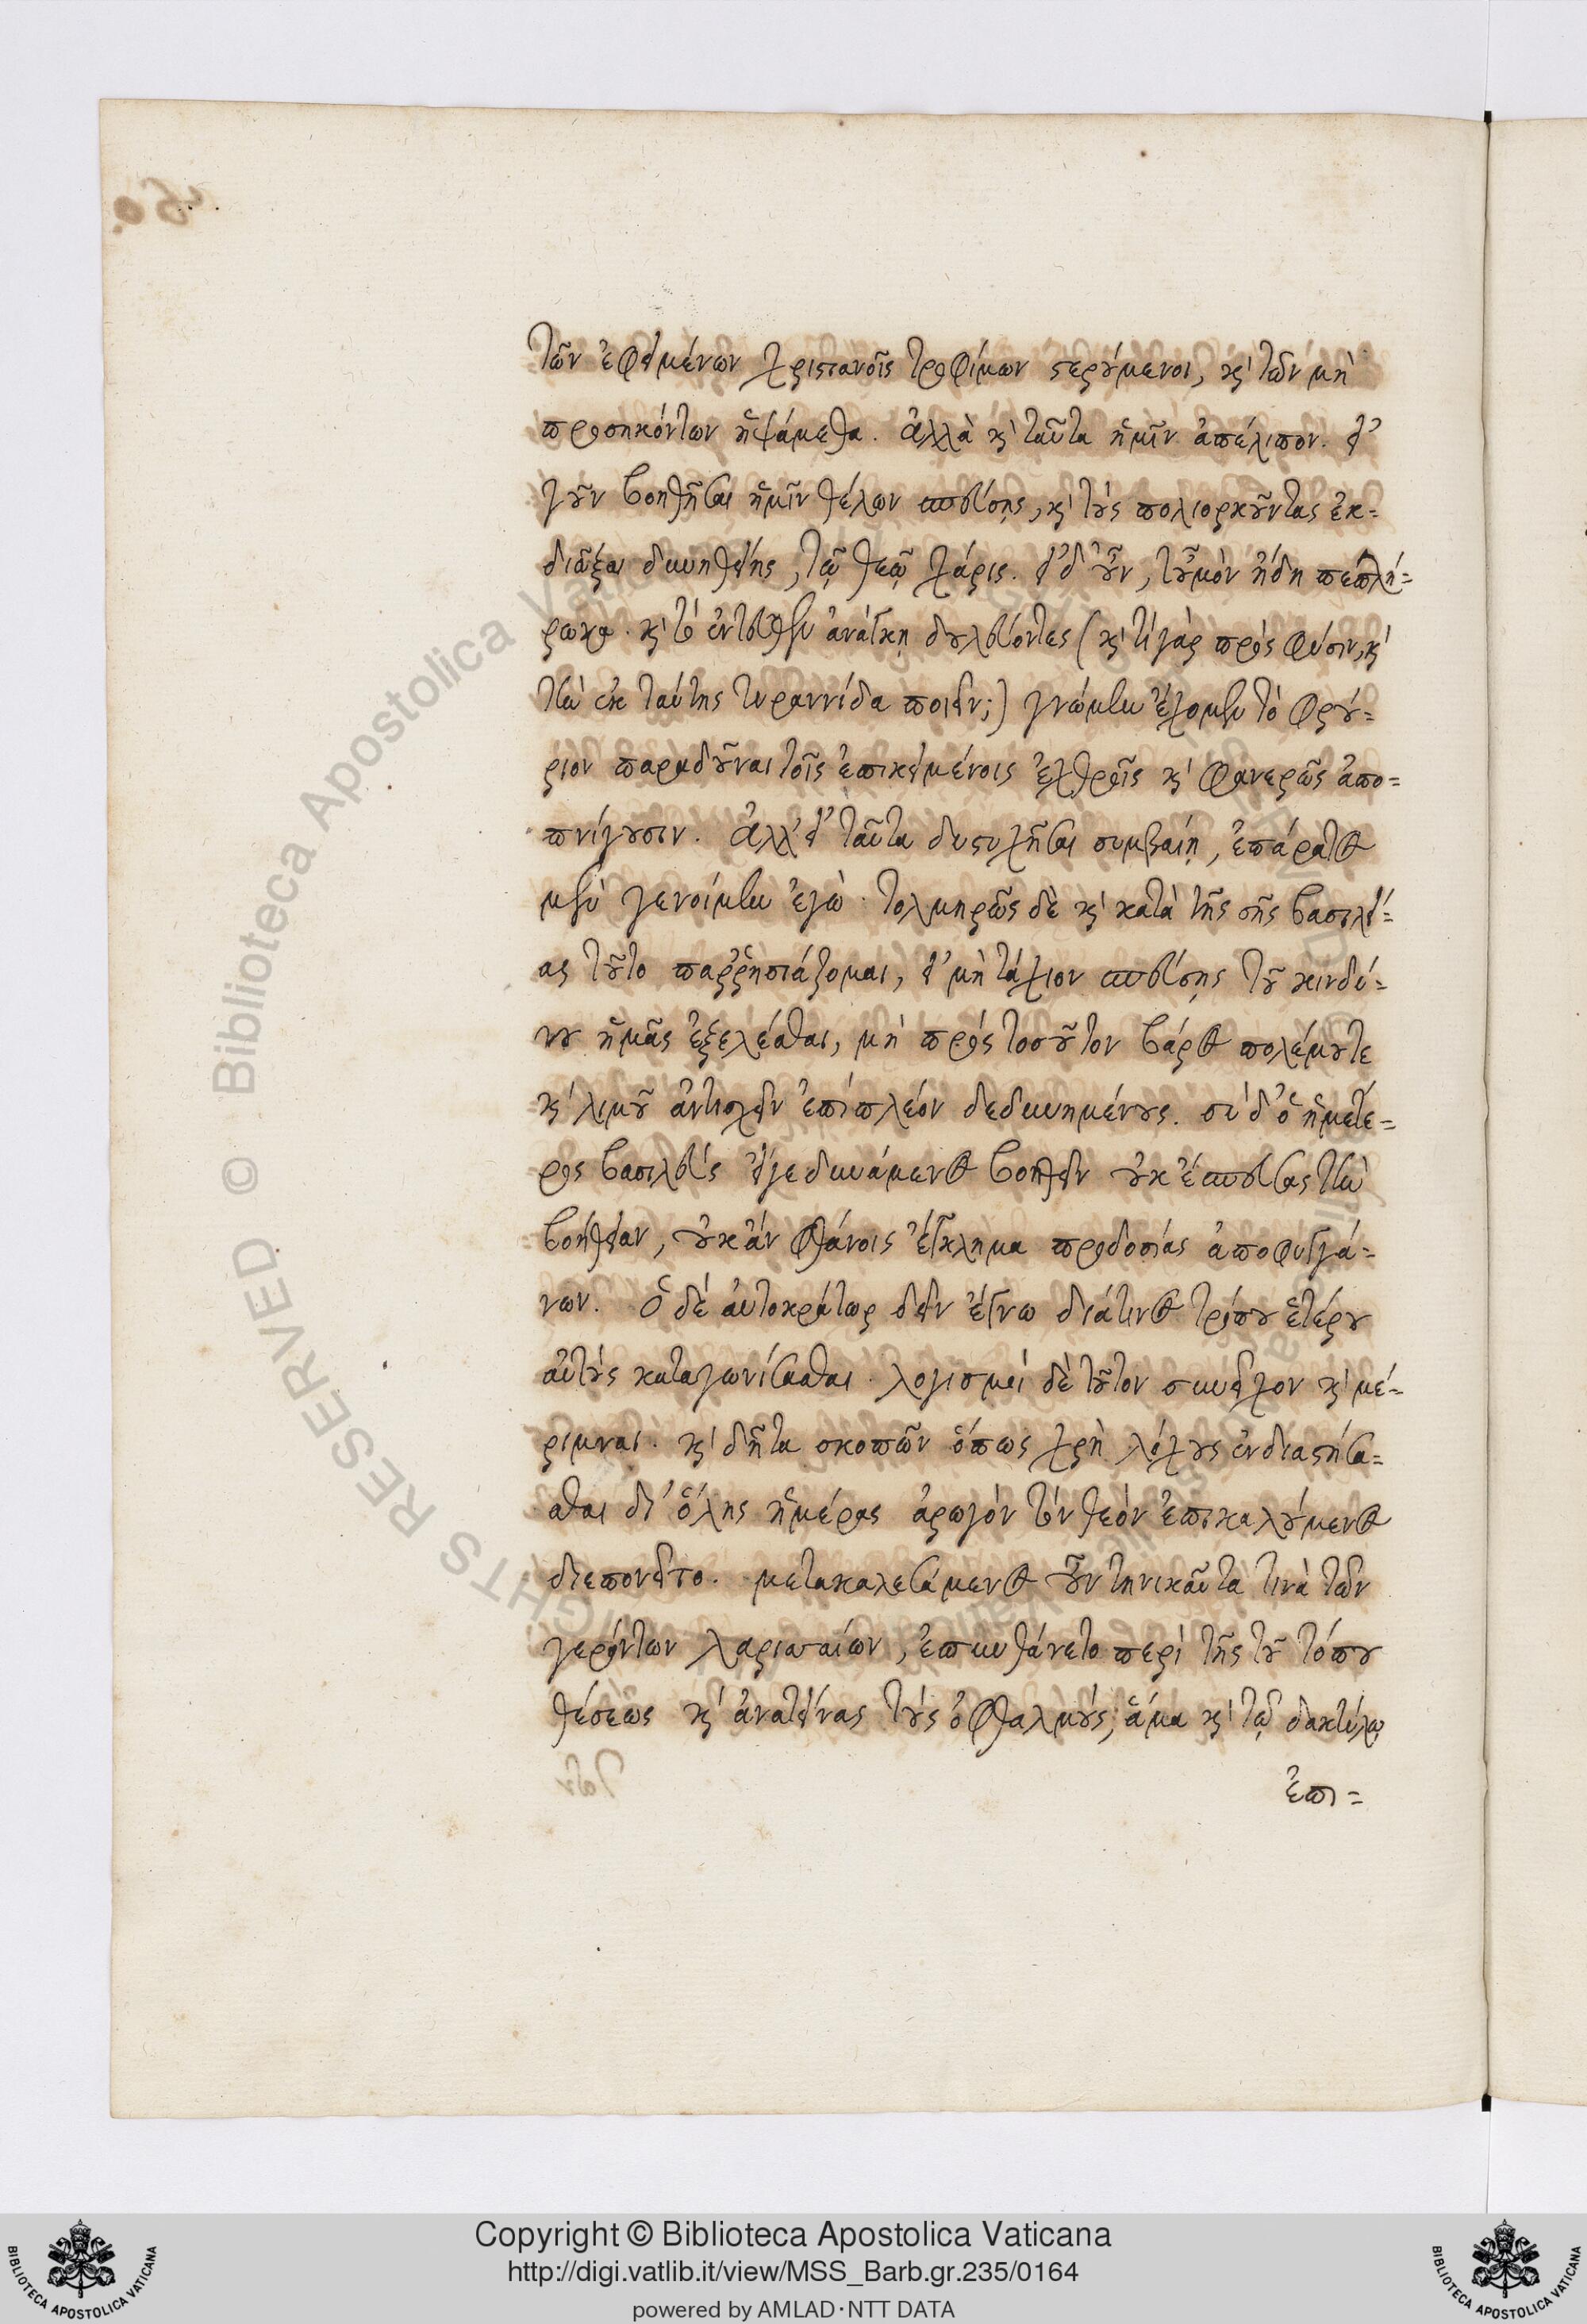 τῶν ἐφειμένων χριστιανοῖς τροφίμων στερούμενοι, κὶ τῶν μὴ
προσηκόντων ἡψάμεθα. ἀλλὰ κὶ ταῦτα ἡμῖν ἀπέλιπον. εἰ
γοῦν βοηθῆσαι ἡμῖν θέλων σπεύσῃς, κὶ τοὺς πολιορκοῦντας ἐκ=
διῶξαι δυνηθείης, τῷ θεῷ χάρις. εἰ δ' οὖν, τοὐμὸν ἤδη πεπλή=
ρωκα. κὶ τὸ ἐντεῦθεν ἀνάγκῃ δουλεύοντες (κὶ τί γὰρ πρὸς φύσιν, κὶ
τὴν ἐκ ταύτης τυραννίδα ποιεῖν;) γνώμην ἔχομεν τὸ φρού=
ριον παραδοῦναι τοῖς ἐπικειμένοις ἐχθροῖς κὶ φανερῶς ἀπο=
πνίγουσιν. ἀλλ' εἰ ταῦτα δυστυχῆσαι συμβαίη, ἐπάρατος
μὲν γενοίμην ἐγώ· τολμηρῶς δὲ κὶ κατὰ τῆς σῆς βασιλεί=
ας τοῦτο παῤῥησιάζομαι, εἰ μὴ τάχιον σπεύσῃς τοῦ κινδύ=
νου ἡμᾶς ἐξελέσθαι, μὴ πρὸς τοσοῦτον βάρος πολέμου τε
κὶ λιμοῦ ἀντισχεῖν ἐπὶ πλέον δεδυνημένους. σὺ δ' ὁ ἡμέτε=
ρος βασιλεὺς εἴγε δυνάμενος βοηθεῖν οὐκ ἔσπευσας τὴν
βοήθειαν, οὐκ ἂν φθάνοις ἔγκλημα προδοσίας ἀποφυγγά=
νων. Ὁ δὲ αὐτοκράτωρ δεῖν ἔγνω διά τινος τρόπου ἑτέρου
αὐτοὺς καταγωνίσασθαι· λογισμοὶ δὲ τοῦτον συνεῖχον κὶ μέ=
ριμναι. κὶ δῆτα σκοπῶν ὅπως χρὴ λόχους ἐνδιαστήσα=
σθαι δι' ὅλης ἡμέρας ἀρωγὸν τὸν θεὸν ἐπικαλούμενος
διεπονεῖτο. μετακαλεσάμενος οὖν τηνικαῦτα τινὰ τῶν
γερόντων λαρισσαίων, ἐπυνθάνετο περὶ τῆς τοῦ τόπου
θέσεως κὶ ἀνατείνας τοὺς ὀφθαλμούς, ἅμα κὶ τῷ δακτύλῳ
ἐπι=
Copyright © Biblioteca Apostolica Vaticana
http://digi.vatlib.it/view/MSS_Barb.gr.235/0164
powered by AMLAD·NTT DATA